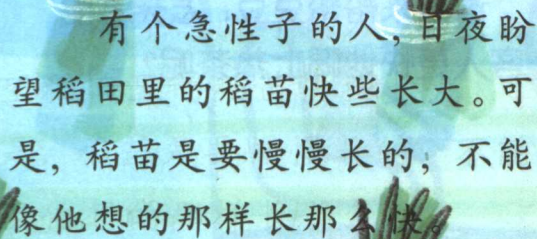 有个急性子的人，日夜盼
望稻田里的稻苗快些长大。可
是，稻苗是要慢慢长的，不能
像他想的那样长那么快。